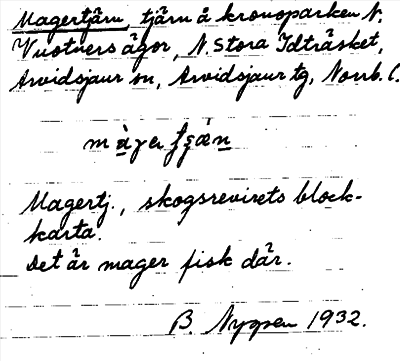 Magertjärn, tjärn å kronoparken N.
Vuotners ägor, N. Stora Idträsket,
Arvidsjaur sn, Arvidsjaur tg, Norrb. l.
Magertj., skogsrevirets block-
karta.
Det är mager fisk där.
B. Nygren 1932.